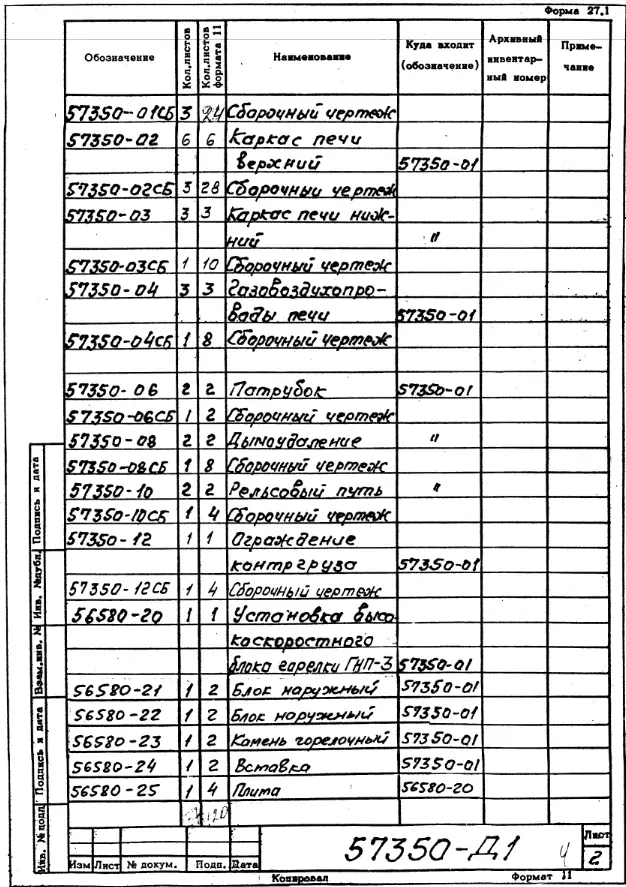 Форма 27.1
Обозначение Кол.листов Кол.листов формата 11 Наименование Куда входит (обозначение) Архивный инвентар-ный номер Приме-чание
57350-01СБ 3 24 Сборочный чертеж
57350-02 6 6 Каркас печи
верхний 57350-01
57350-02СБ 3 28 Сборочный чертеж
57350-03 3 3 Каркас печи ниж-
ний "
57350-03СБ 1 10 Сборочный чертеж
57350-04 3 3 Газовоздухопро-
вады печи 57350-01
57350-04СБ 1 8 Сборочный чертеж
57350-06 2 2 Патрубок 57350-01
57350-06СБ 1 2 Сборочный чертеж
57350-08 2 2 Дымоудаление "
57350-08СБ 1 8 Сборочный чертеж
57350-10 2 2 Рельсовый путь "
57350-10СБ 1 4 Сборочный чертеж
57350-12 1 1 Ограждение
контргруза 57350-01
57350-12СБ 1 4 Сборочный чертеж
56580-20 1 1 Установка высо
коскоростного
блока гарелки ГНП-3 57350-01
56580-21 1 2 Блок наружный 57350-01
56580-22 1 2 Блок наружный 57350-01
56580-23 1 2 Камень горелочный 57350-01
56580-24 1 2 Вставка 57350-01
56580-25 1 4 Плита 56580-20
Инв. № подл. Подпись и дата Взам.инв. № Инв. №дубл. Подпись и дата
Изм Лист № докум. Подп. Дата
57350-Д1 4
Лист
2
Копировал Формат 11